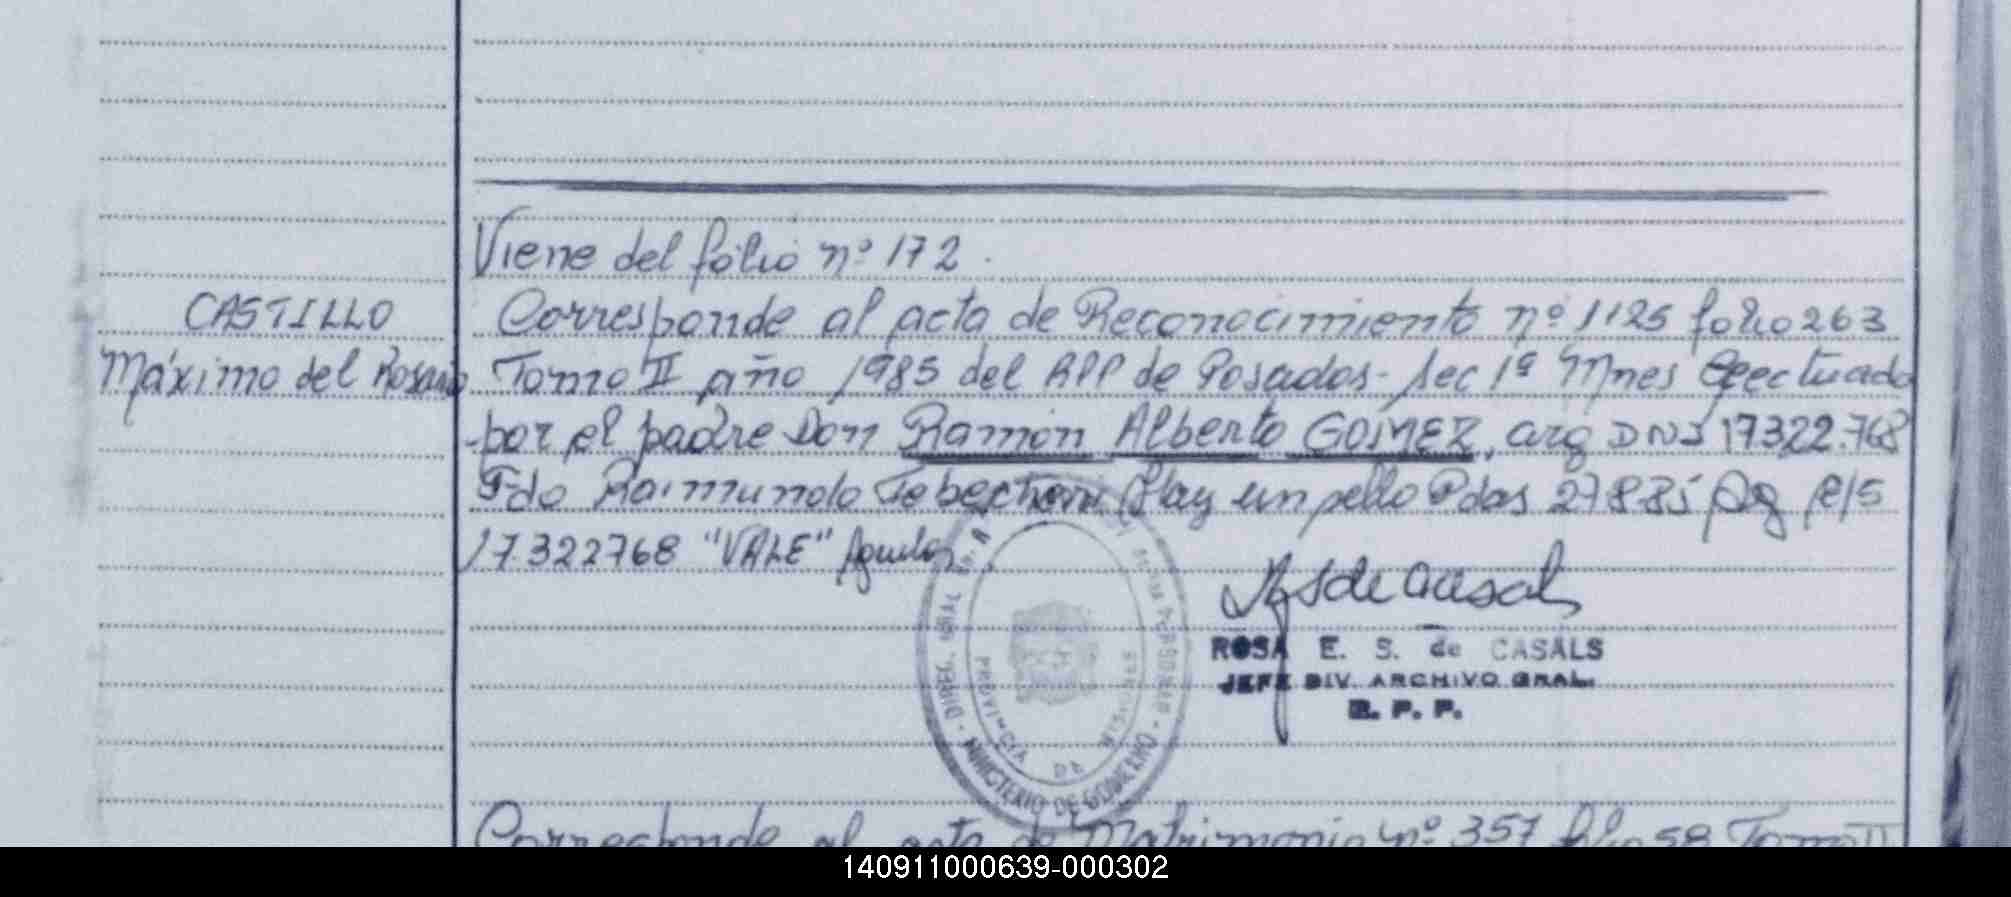 Viene del folio nº 172.
CASTILLO
Máximo del Rosario
Corresponde al acta de Reconocimiento nº 1125 folio 263
Tomo II año 1985 del RPP de Posadas - Sec 1ª Mnes Efectuado
por el padre Don Ramón Alberto GOMEZ, arg DNI 17322.768
Fdo Raimundo Hay un sello Pdas 27885
17.322768 "VALE"
ROSA E. S. de CASALS
JEFE DIV. ARCHIVO GRAL.
R. P. P.
MINISTERIO DE GOBIERNO
PROVINCIA DE MISIONES
Corresponde al acta de Matrimonio nº 357 folio 58 Tomo II
140911000639-000302